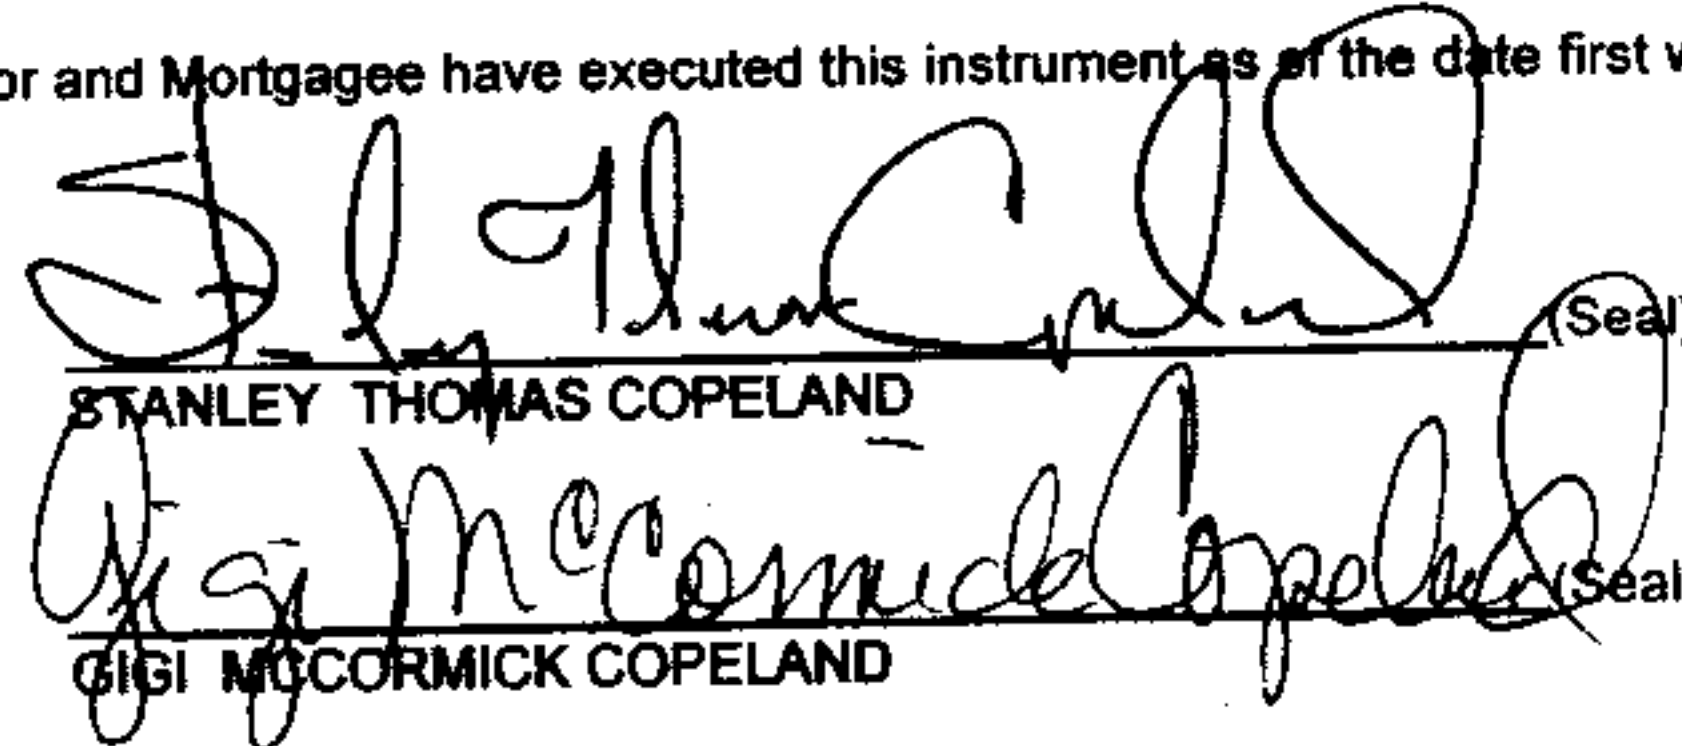 or and Mortgagee have executed this instrument as of the date first w
Stanley Thomas Copeland (Seal)
STANLEY THOMAS COPELAND
Gigi McCormick Copeland (Seal
GIGI MCCORMICK COPELAND